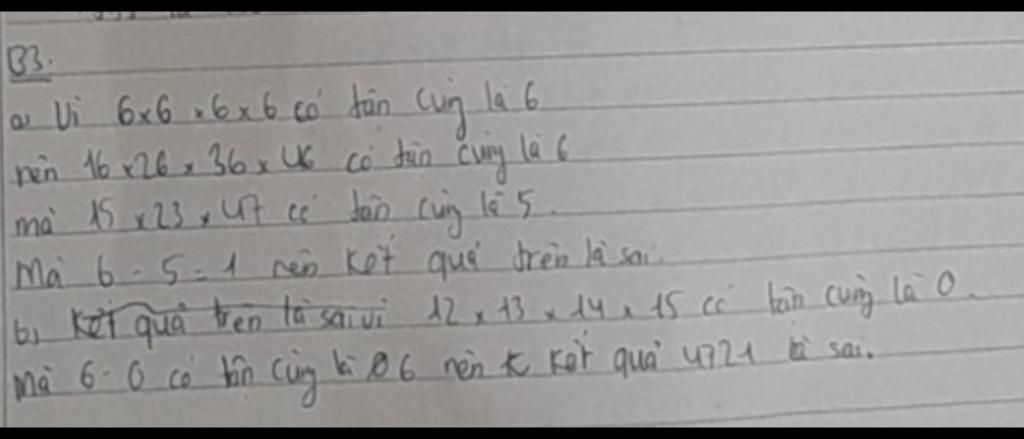 B3.
a, Vì 6x6 x 6 x 6 có tận cùng là 6
nên 16 x 26 x 36 x 46 có tận cùng là 6
mà 15 x 23 x 47 có tận cùng là 5.
Mà 6 - 5 = 1 nên kết quả trên là sai.
b, Kết quả trên là sai vì 12 x 13 x 14 x 15 có tận cùng là 0.
mà 6 - 0 có tận cùng là 6 nên kết quả 4721 là sai.